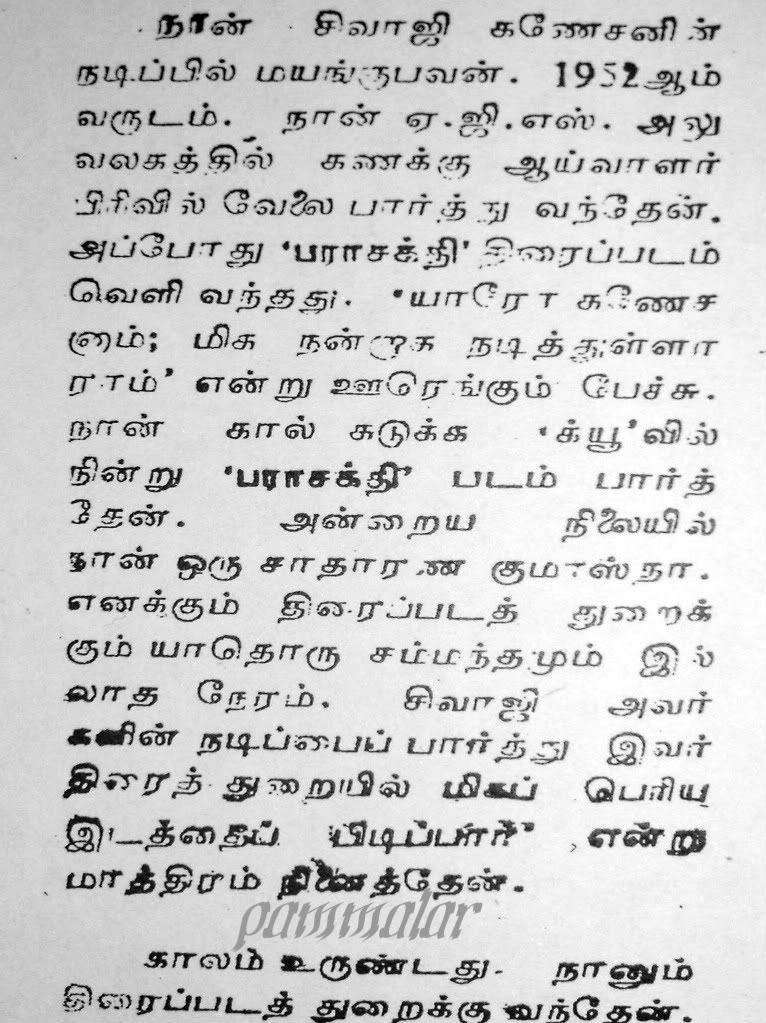 நான் சிவாஜி கணேசனின்
நடிப்பில் மயங்குபவன். 1952ஆம்
வருடம். நான் ஏ.ஜி.எஸ். அலு
வலகத்தில் கணக்கு ஆய்வாளர்
பிரிவில் வேலை பார்த்து வந்தேன்.
அப்போது 'பராசக்தி' திரைப்படம்
வெளி வந்தது. 'யாரோ கணேச
னாம்; மிக நன்றாக நடித்துள்ளா
ராம்' என்று ஊரெங்கும் பேச்சு.
நான் கால் கடுக்க 'க்யூ'வில்
நின்று 'பராசக்தி' படம் பார்த்
தேன். அன்றைய நிலையில்
நான் ஒரு சாதாரண குமாஸ்தா.
எனக்கும் திரைப்படத் துறைக்
கும் யாதொரு சம்மந்தமும் இல்
லாத நேரம். சிவாஜி அவர்
களின் நடிப்பைப் பார்த்து இவர்
திரைத் துறையில் மிகப் பெரிய
இடத்தைப் பிடிப்பார்' என்று
மாத்திரம் நினைத்தேன்.
pammalar
காலம் உருண்டது. நானும்
திரைப்படத் துறைக்கு வந்தேன்.